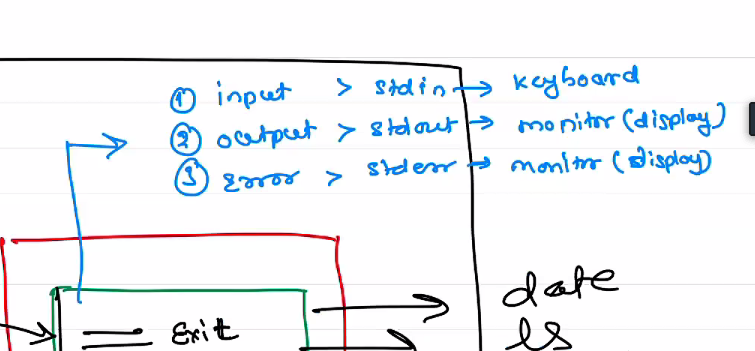 ① input > stdin → keyboard
② output > stdout → monitor (display)
③ Error > stderr → monitor (display)
date
Exit
ls